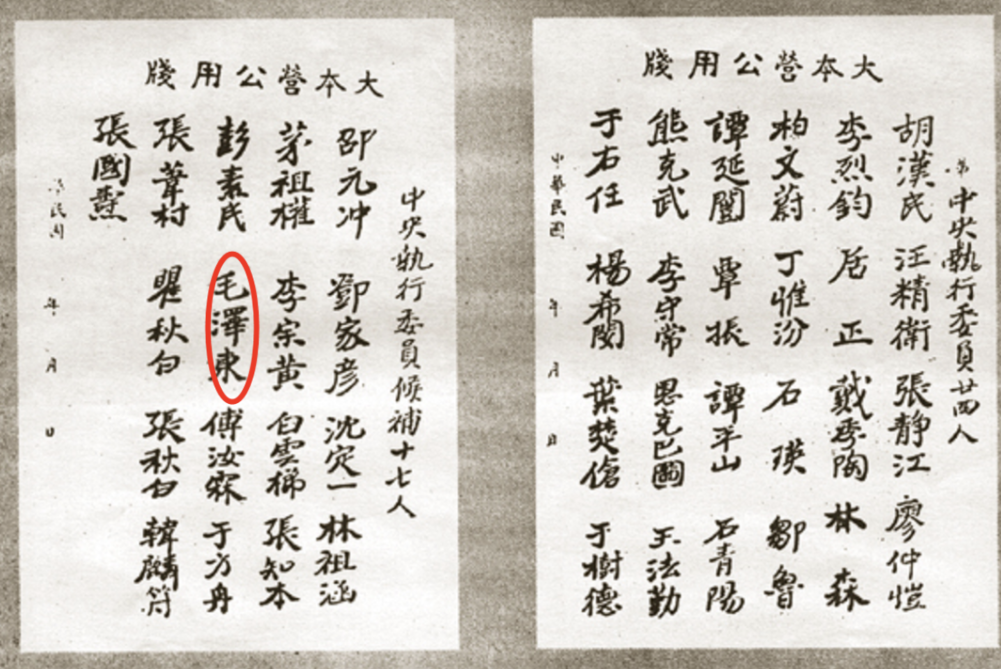 大本營公用牋
第
中央執行委員廿四人
胡漢民 汪精衛 張靜江 廖仲愷
李烈鈞 居正 戴季陶 林森
柏文蔚 丁惟汾 石瑛 鄒魯
譚延闓 覃振 譚平山 石青陽
熊克武 李守常 恩克巴圖 王法勤
于右任 楊希閔 葉楚傖 于樹德
中華民國 年 月 日
大本營公用牋
中央執行委員候補十七人
邵元冲 鄧家彦 沈定一 林祖涵
茅祖權 李宗黃 白雲梯 張知本
彭素民 毛澤東 傅汝霖 于方舟
張葦村 瞿秋白 張秋白 韓麟符
張國燾
民國 年 月 日